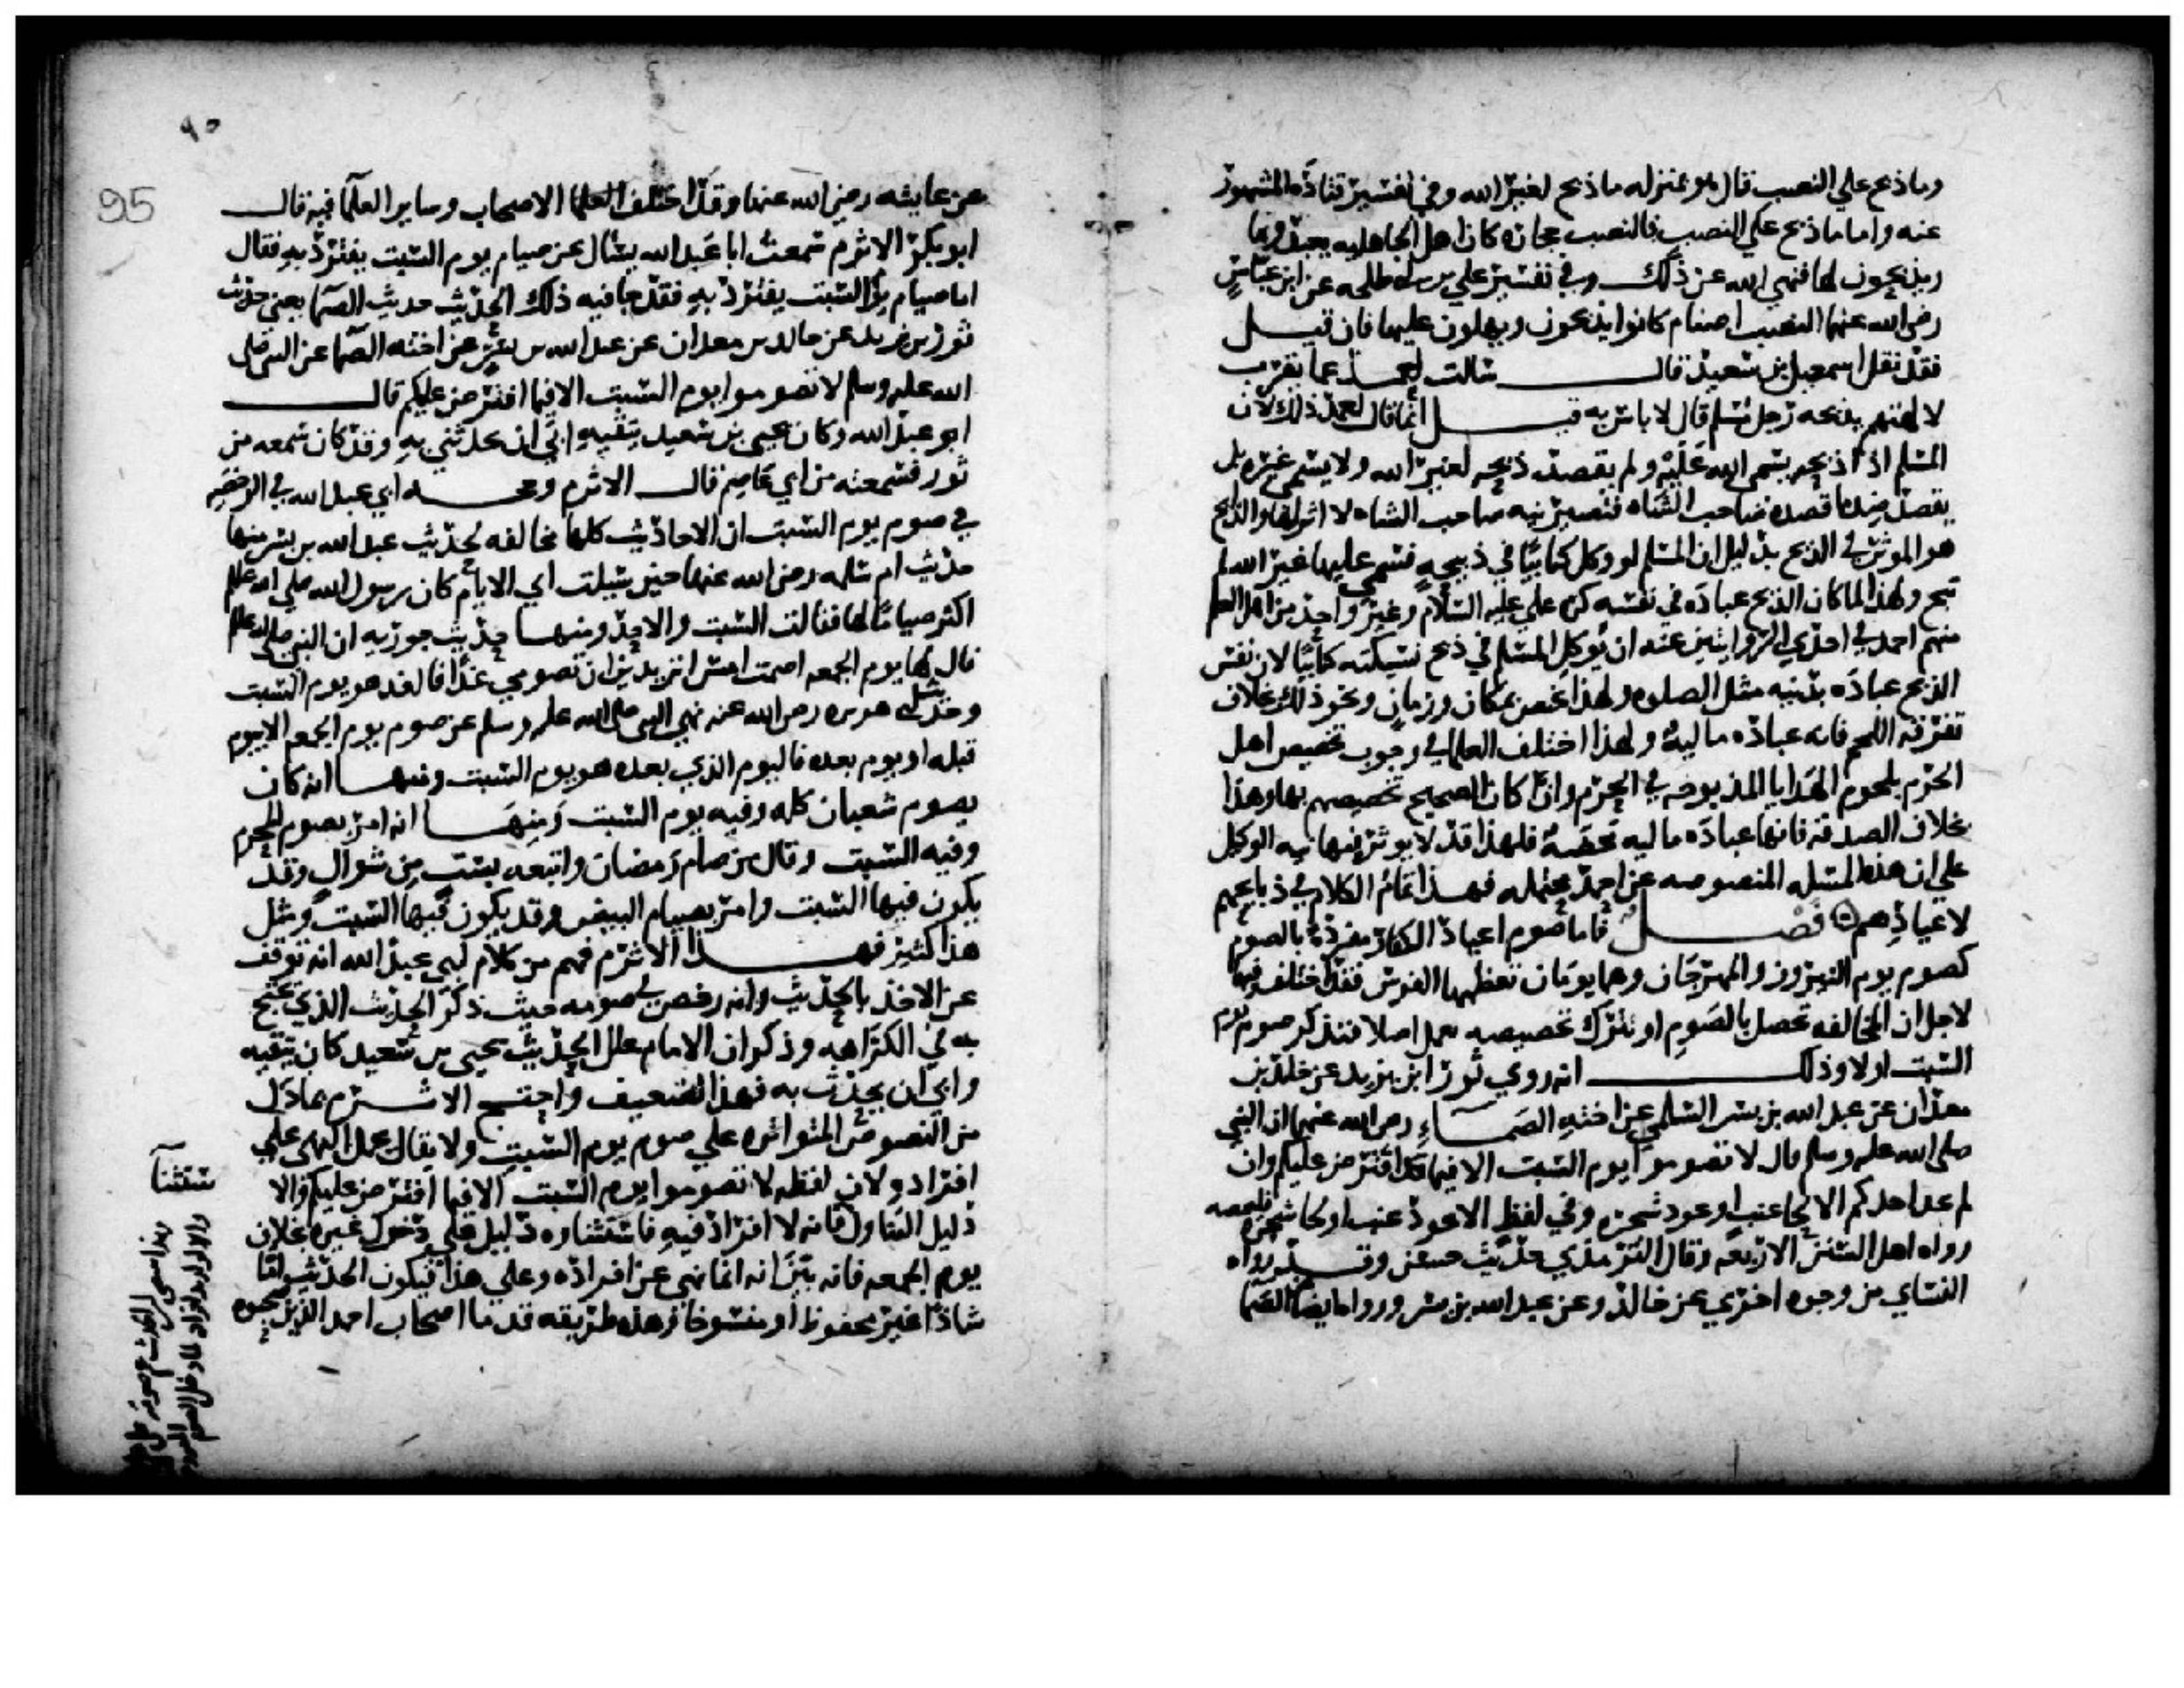 وما ذبح علي النصب قال هو بمنزله ما ذبح لغير الله وفي تفسير قتادة المشهور
عنه واما ما ذبح علي النصب فالنصب حجاره كان اهل الجاهليه يعبدونها
ويذبحون لها فنهي الله عن ذلك وفي تفسير علي بن ابي طلحه عن ابن عباس
رضي الله عنهما النصب اصنام كانوا يذبحون ويهلون عليها فان قيل
فقد نقل اسمعيل بن سعيد قال سالت احمد عما يقرب
لالهتهم يذبحه رجل مسلم قال لا باس به قيل انما قال احمد ذلك لان
المسلم اذا ذبحه سمي الله عليه ولم يقصد ذبحه لغير الله ولا يسمي غيره بل
يقصد ضد ما قصده صاحب الشاه فتصير نيه صاحب الشاه لا اثر لها والذابح
هو الموثر في الذبح بدليل ان المسلم لو وكل كتابيا في ذبيحه فسمي عليها غير الله لم
تبح ولهذا لما كان الذبح عباده في نفسه كره علي عليه السلام وغير واحد من اهل العلم
منهم احمد في احدي الروايتين عنه ان يوكل المسلم في ذبح نسيكته كتابيا لان نفس
الذبح عباده بدنيه مثل الصلوه ولهذا تختص بمكان وزمان ونحو ذلك بخلاف
تفرقة اللحم فانه عباده ماليه ولهذا اختلف العلما في وجوب تخصيص اهل
الحرم بلحوم الهدايا المذبوحه في الحرم وان كان الصحيح تخصيصهم بها وهذا
بخلاف الصدقة فانها عباده ماليه محضه فلهذا قد لا يوثر فيها نيه الوكيل
علي ان هذه المسله المنصوصه عن احمد محتمله فهذا تمام الكلام في ذبايحهم
لاعيادهم فصل فاما صوم اعياد الكفار مفرده بالصوم
كصوم يوم النيروز والمهرجان وهما يومان تعظمهما الفرس فقد اختلف فيهما
لاجل ان المخالفه تحصل بالصوم او بترك تخصيصه بعمل اصلا فنذكر صوم يوم
السبت اولا وذلك انه روي ثور ابن يزيد عن خلد بن
معدان عن عبد الله بن بسر السلمي عن اخته الصماء رضي الله عنهما ان النبي
صلي الله عليه وسلم قال لا تصوموا يوم السبت الا فيما افترض عليكم وان
لم يجد احدكم الا لحا عنب او عود شجره وفي لفظ الا عود عنب او لحا شجره فليمصه
رواه اهل السنن الاربعه وقال الترمذي حديث حسن وقد رواه
النساي من وجوه اخري عن خالد وعن عبد الله بن بسر ورواه ايضا الصما
٩٥
95
عن عايشه رضي الله عنها وقد اختلف العلما الاصحاب وساير العلما فيه قال
ابو بكر الاثرم سمعت ابا عبد الله يسال عن صيام يوم السبت يفترد به فقال
اما صيام يوم السبت يفترد به فقد جا فيه ذلك الحديث حديث الصما يعني حديث
ثور بن يزيد عن خالد بن معدان عن عبد الله بن بسر عن اخته الصما عن النبي صلي
الله عليه وسلم لا تصوموا يوم السبت الا فيما افترض عليكم قال
ابو عبد الله وكان يحيي بن سعيد يتقيه ابي ان يحدثني به وقد كان سمعه من
ثور فسمعته من ابي عاصم قال الاثرم وحجه ابي عبد الله في الرخصه
في صوم يوم السبت ان الاحاديث كلها مخالفه لحديث عبد الله بن بسر منها
حديث ام سلمه رضي الله عنها حين سيلت اي الايام كان رسول الله صلي الله عليه وسلم
اكثر صياما لها فقالت السبت والاحد ومنها حديث جويريه ان النبي صلي الله عليه وسلم
قال لها يوم الجمعه اصمت امس اتريدين ان تصومي غدا فالغد هو يوم السبت
وحديث ابي هريره رضي الله عنه نهي النبي صلي الله عليه وسلم عن صوم يوم الجمعه الا بيوم
قبله او يوم بعده فاليوم الذي بعده هو يوم السبت ومنها انه كان
يصوم شعبان كله وفيه يوم السبت ومنها انه امر بصوم المحرم
وفيه السبت وقال من صام رمضان واتبعه بست من شوال وقد
يكون فيها السبت وامر بصيام البيض وقد يكون فيها السبت ومثل
هذا كثير فهذا الاثرم فهم من كلام ابي عبد الله انه توقف
عن الاخذ بالحديث وانه رخص في صومه حيث ذكر الحديث الذي يحتج
به في الكراهه وذكر ان الامام علل الحديث يحيي بن سعيد كان يتقيه
وابي ان يحدث به فهذا تضعيف واحتج الاثرم بما دل
من النصوص المتواتره علي صوم يوم السبت ولا يقال يحمل النهي علي
افراده لان لفظه لا تصوموا يوم السبت الا فيما افترض عليكم والا
دليل التناول فانه لا افراد فيه فاستثناوه دليل علي دخول غيره بخلاف
يوم الجمعه فانه بين انه انما نهي عن افراده وعلي هذا فيكون الحديث اما
شاذا غير محفوظ او منسوخا وهذه طريقه قدما اصحاب احمد الذين صحبوه
ستثنا